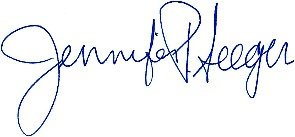 Jennifer P Heeger